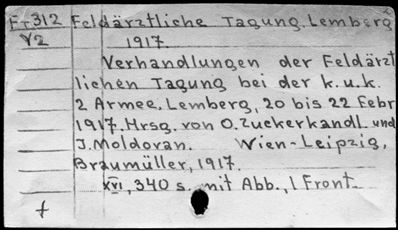 Fr312 Feldärztliche Tagung. Lemberg
V2 1917.
Verhandlungen der Feldärzt
lichen Tagung bei der k.u.k.
2 Armee. Lemberg, 20 bis 22 Febr
1917. Hrsg. von O. Zuckerkandl und
J. Moldovan. Wien-Leipzig,
Braumüller, 1917.
XVI, 340 s. mit Abb., 1 Front.